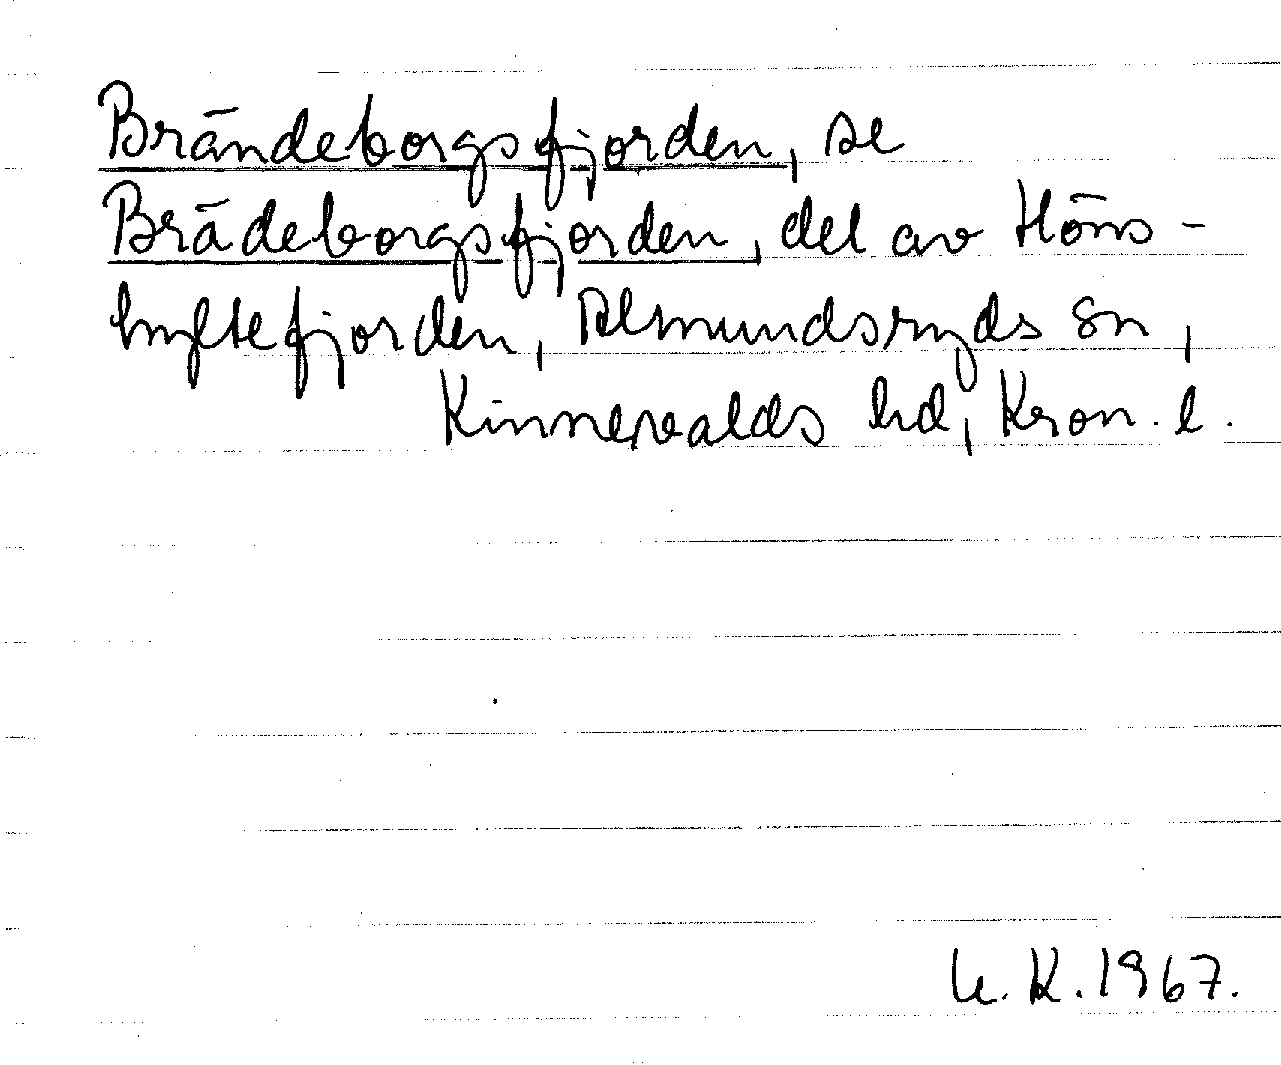 Brändeborgsfjorden, se
Brädeborgsfjorden, del av Höns-
hyltefjorden, Almundsryds sn,
Kinnevalds hd, Kron. l.
U. K. 1967.